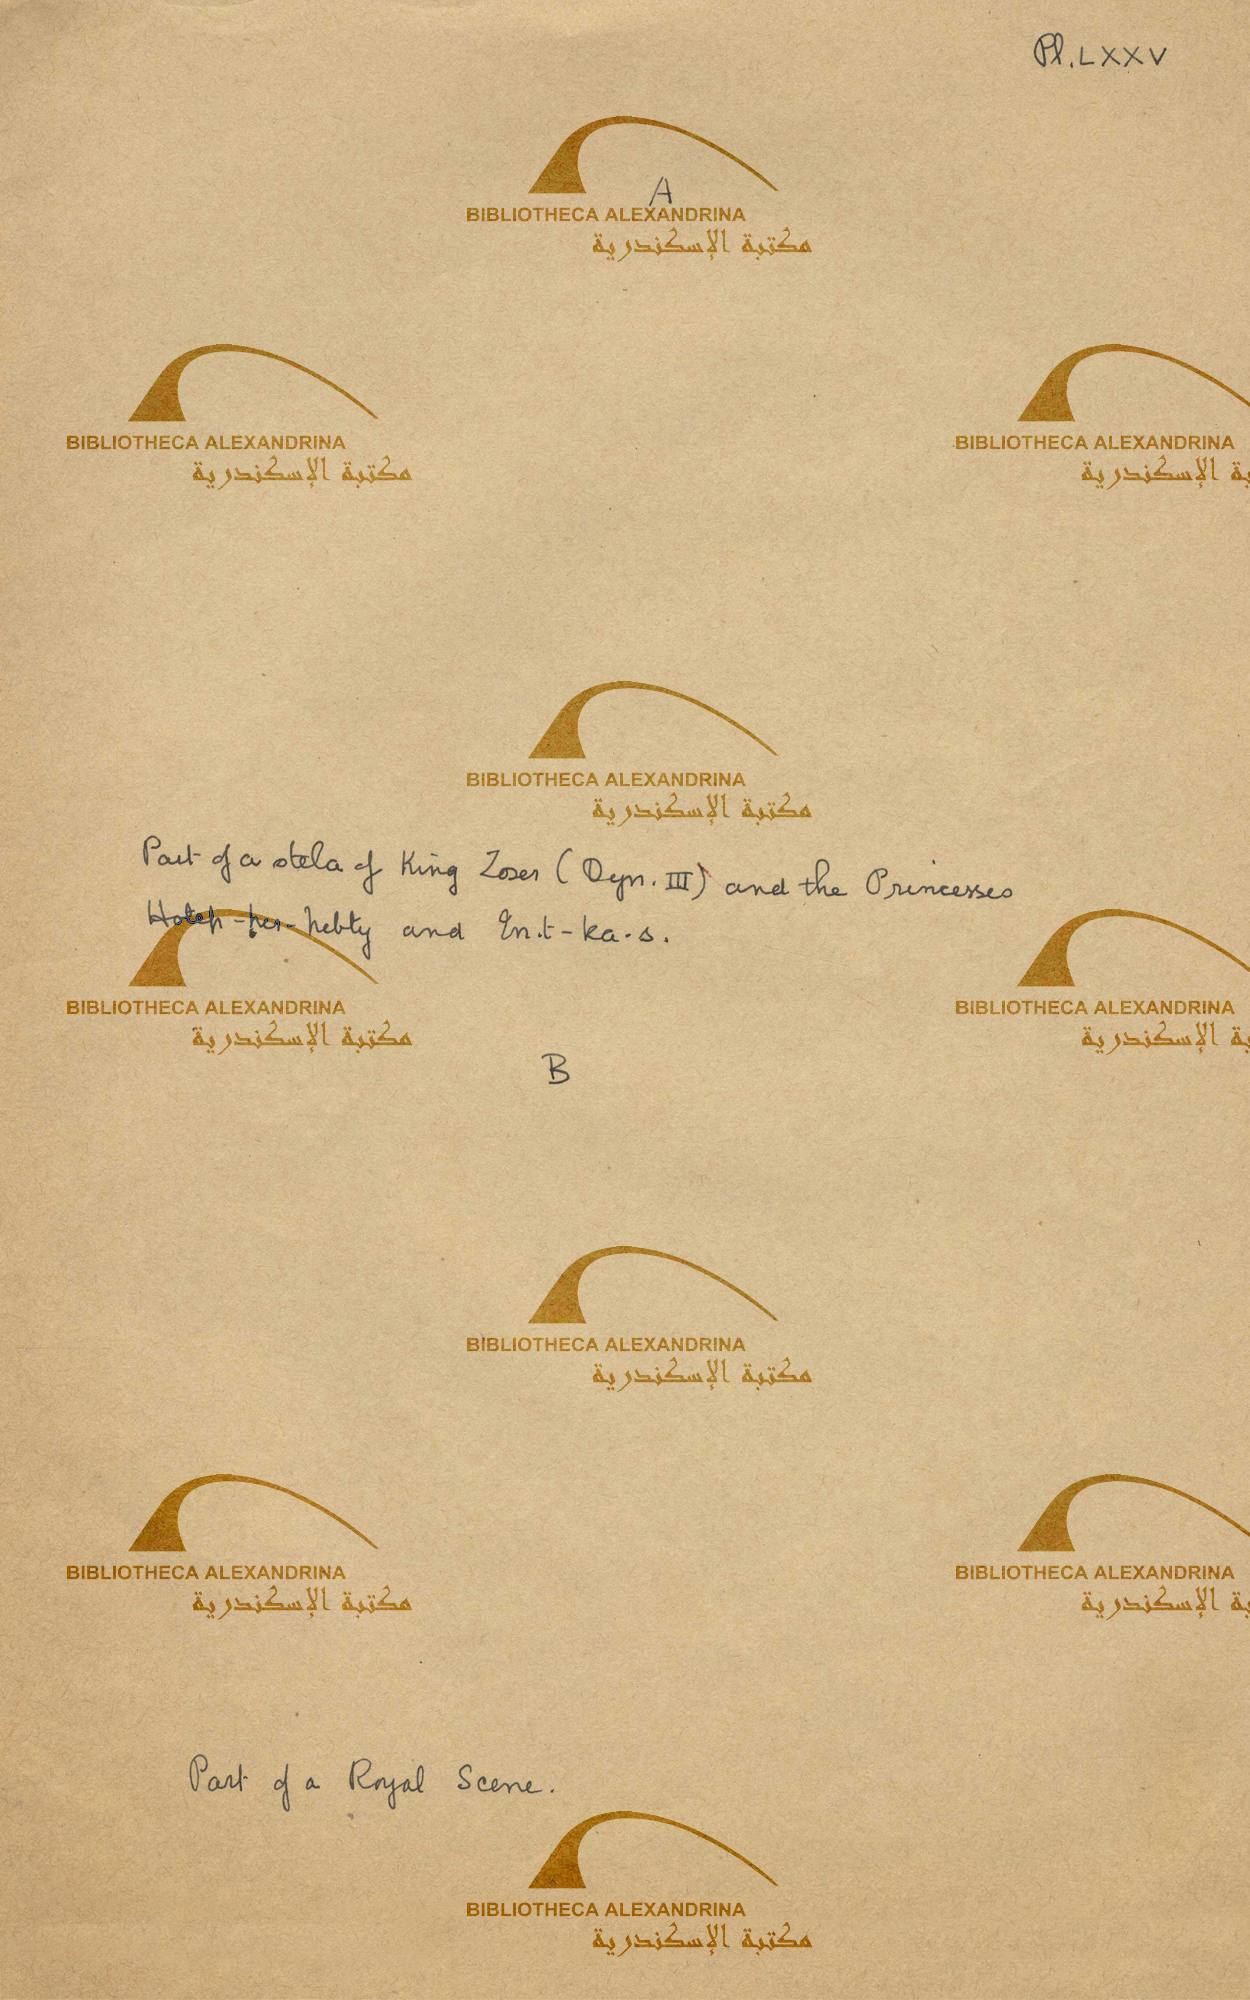 Pl. LXXV
A
BIBLIOTHECA ALEXANDRINA
مكتبة الإسكندرية
BIBLIOTHECA ALEXANDRINA
مكتبة الإسكندرية
BIBLIOTHECA ALEXANDRINA
BIBLIOTHECA ALEXANDRINA
مكتبة الإسكندرية
Part of a stela of King Zoser (Dyn. III) and the Princesses
Hotep-her-nebty and In.t-ka-s.
BIBLIOTHECA ALEXANDRINA
مكتبة الإسكندرية
BIBLIOTHECA ALEXANDRINA
B
BIBLIOTHECA ALEXANDRINA
مكتبة الإسكندرية
BIBLIOTHECA ALEXANDRINA
مكتبة الإسكندرية
BIBLIOTHECA ALEXANDRINA
Part of a Royal Scene.
BIBLIOTHECA ALEXANDRINA
مكتبة الإسكندرية